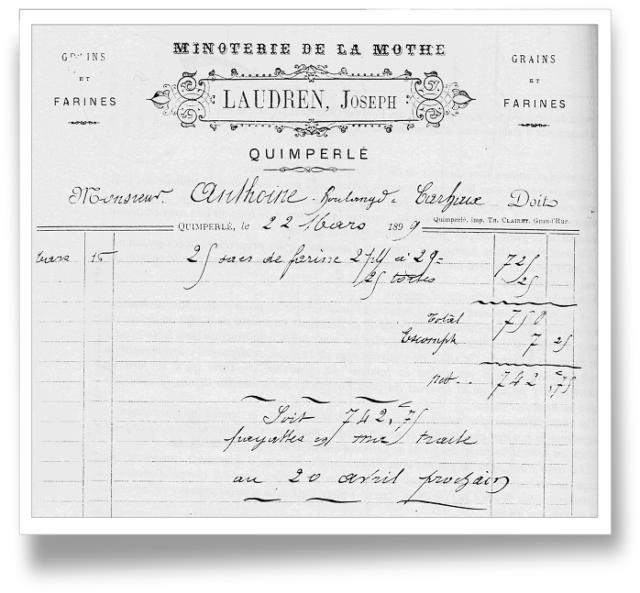 MINOTERIE DE LA MOTHE
GRAINS
ET
FARINES
LAUDREN, JOSEPH
GRAINS
ET
FARINES
QUIMPERLÉ
Monsieur Anthoine Boulanger à Carhaix Doit
QUIMPERLÉ, le 22 Mars 1899
Quimperlé, imp. TH. CLAIRET, Grand'Rue.
Mars 15 25 sacs de farine à 29= 725
25 25
Total 750
Escompte 7 25
net.. 742,75
Soit 742,75
payables en ma traite
au 20 avril prochain